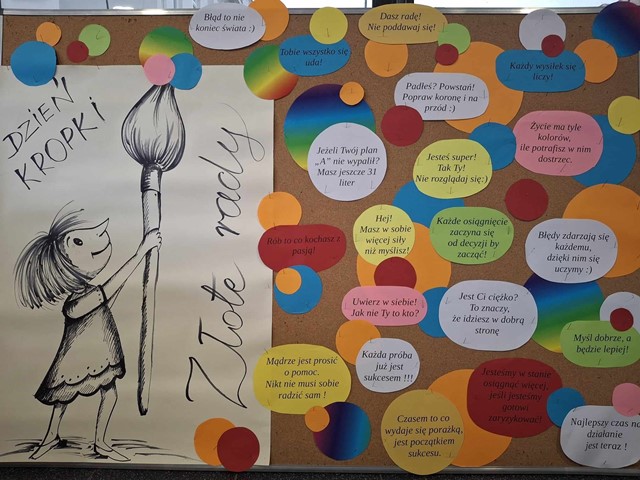 DZIEŃ
KROPKI
Złote rady
Błąd to nie
koniec świata :)
Tobie wszystko się
uda!
Dasz radę!
Nie poddawaj się!
Każdy wysiłek się
liczy!
Padłeś? Powstań!
Popraw koronę i na
przód :)
Życie ma tyle
kolorów,
ile potrafisz w nim
dostrzec.
Jeżeli Twój plan
„A” nie wypalił?
Masz jeszcze 31
liter
Jesteś super!
Tak Ty!
Nie rozglądaj się:)
Hej!
Masz w sobie
więcej siły
niż myślisz!
Każde osiągnięcie
zaczyna się
od decyzji by
zacząć!
Błędy zdarzają się
każdemu,
dzięki nim się
uczymy :)
Rób to co kochasz z
pasją!
Uwierz w siebie!
Jak nie Ty to kto?
Jest Ci ciężko?
To znaczy,
że idziesz w dobrą
stronę
Myśl dobrze, a
będzie lepiej!
Mądrze jest prosić
o pomoc.
Nikt nie musi sobie
radzić sam !
Każda próba
już jest
sukcesem !!!
Jesteśmy w stanie
osiągnąć więcej,
jeśli jesteśmy
gotowi
zaryzykować!
Czasem to co
wydaje się porażką,
jest początkiem
sukcesu.
Najlepszy czas na
działanie
jest teraz !